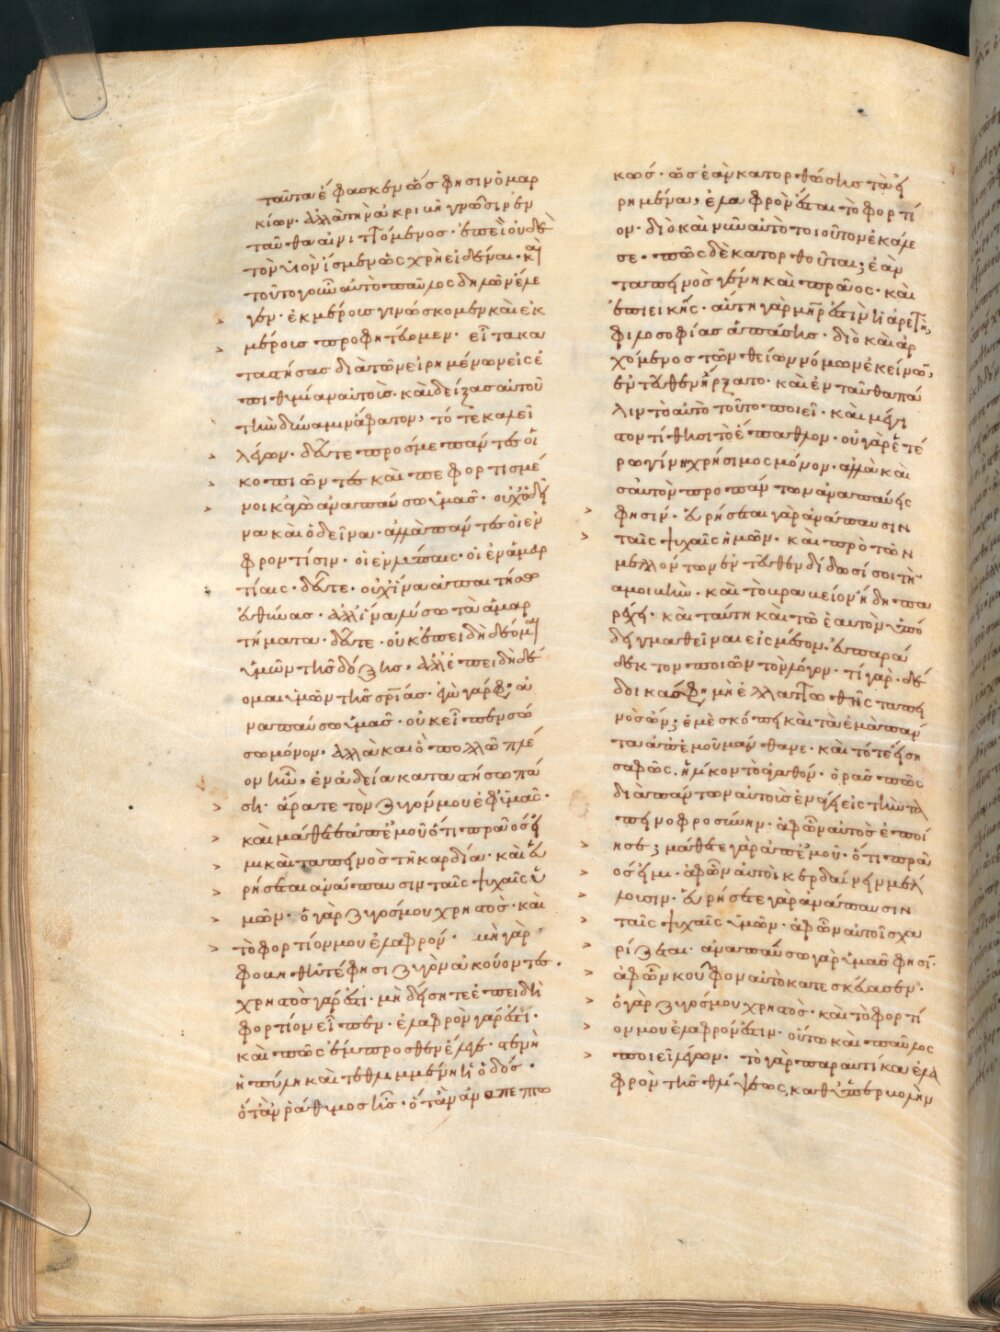 ταῦτα ἔφασκεν ὥς φησιν ὁ μαρ
κίων. ἀλλὰ τὴν ἀκριβῆ γνῶσιν ἐν
ταῦθα αἰνιττόμενος. ἐπεὶ οὐδὲ
τὸν υἱὸν ἴσμεν ὡς χρὴ εἰδέναι. καὶ
τοῦτο γοῦν αὐτὸ παῦλος δηλῶν ἔλε
γεν. ἐκ μέρους γινώσκομεν καὶ ἐκ
μέρους προφητεύομεν. εἶτα κα
ταστήσας διὰ τῶν εἰρημένων εἰς ἐ
πιθυμίαν αὐτοὺς. καὶ δείξας αὐτοῦ
τὴν δύναμιν ἄφατον, τότε καλεῖ
λέγων. δεῦτε πρός με πάντες οἱ
κοπιῶντες καὶ πεφορτισμέ
νοι κἀγὼ ἀναπαύσω ὑμᾶς. οὐχ ὁ δεῖ
να καὶ ὁ δεῖνα. ἀλλὰ πάντες οἱ ἐν
φροντίσιν. οἱ ἐν λύπαις. οἱ ἐν ἁμαρ
τίαις. δεῦτε. οὐχ ἵνα ἀπαιτήσω
εὐθύνας. ἀλλ' ἵνα λύσω τὰ ἁμαρ
τήματα. δεῦτε. οὐκ ἐπειδὴ δέομαι
ὑμῶν τῆς δόξης, ἀλλ' ἐπειδὴ δέ
ομαι ὑμῶν τῆς σρίας. ἐγὼ γάρ φησιν ἀ
ναπαύσω ὑμᾶς. οὐκ εἶπεν σώ
σω μόνον, ἀλλὰ καὶ ὃ πολλῷ πλέ
ον ἦν, ἐν ἀδείᾳ καταστήσω πά
σῃ. ἄρατε τὸν ζυγόν μου ἐφ' ὑμᾶς.
καὶ μάθετε ἀπ' ἐμοῦ ὅτι πρᾶός εἰ
μι καὶ ταπεινὸς τῇ καρδίᾳ. καὶ εὑ
ρήσετε ἀνάπαυσιν ταῖς ψυχαῖς ὑ
μῶν. ὁ γὰρ ζυγός μου χρηστὸς. καὶ
τὸ φορτίον μου ἐλαφρόν. μὴ γὰρ
φοβηθῆτέ φησι ζυγὸν ἀκούοντες.
χρηστὸς γάρ ἐστι. μὴ δείσητε ἐπειδὴ
φορτίον εἶπεν. ἐλαφρὸν γάρ ἐστι.
καὶ πῶς ἔμπροσθεν ἔλεγε. στενὴ
ἡ πύλη καὶ τεθλιμμένη ἡ ὁδός.
ὅταν ῥάθυμος ᾖς. ὅταν ἀναπεπτω
κώς. ὡς ἐὰν κατορθώσῃς τὰ εἰ
ρημένα, ἐλαφρὸν ἔσται τὸ φορτί
ον. διὸ καὶ νῦν αὐτὸ τοιοῦτον ἐκάλε
σε. πῶς δὲ κατορθοῦται; ἐὰν
ταπεινὸς γένῃ καὶ πρᾶος. καὶ
ἐπιεικής. αὕτη γὰρ μήτηρ ἐστὶν ἡ ἀρετὴ,
φιλοσοφίας ἁπάσης. διὸ καὶ ἀρ
χόμενος τῶν θείων νόμων ἐκείνων,
ἐντεῦθεν ἤρξατο. καὶ ἐνταῦθα πά
λιν τὸ αὐτὸ τοῦτο ποιεῖ. καὶ μέγι
στον τίθησι τὸ ἔπαθλον. οὐ γὰρ ἑτέ
ρῳ γίνῃ χρήσιμος μόνον. ἀλλὰ καὶ
σαυτὸν πρὸ πάντων ἀναπαύεις
φησιν. εὑρήσετε γὰρ ἀνάπαυσιν
ταῖς ψυχαῖς ἡμῶν. καὶ πρὸ τῶν
μελλόντων ἐντεῦθεν δίδωσί σοι τὴν
ἀμοιβὴν. καὶ τὸ βραβεῖον ἤδη πα
ρέχει. καὶ ταύτῃ καὶ τῷ ἑαυτὸν ὑπό
δειγμα θεῖναι εἰς μέσον. εὐπαρά
δεκτον ποιῶν τὸν λόγον. τί γὰρ δέ
δοικάς φησι. μὴ ἐλαττωθῇς ταπει
νὸς ὤν; ἐμὲ σκόπει καὶ τὰ ἐμὰ πάν
τα ἀπ' ἐμοῦ μάνθανε. καὶ τότε εἴσῃ
σαφῶς, ἡλίκον τὸ ἀγαθόν. ὁρᾷς πῶς
διὰ πάντων αὐτοὺς ἐνάγει εἰς τὴν τα
πεινοφροσύνην. ἀφ' ὧν αὐτὸς ἐποί
ησε; μάθετε γὰρ ἀπ' ἐμοῦ. ὅτι πρᾶ
ός εἰμι. ἀφ' ὧν αὐτοὶ κερδαίνειν μέλ
λουσιν. εὑρήσετε γὰρ ἀνάπαυσιν
ταῖς ψυχαῖς ὑμῶν. ἀφ' ὧν αὐτοῖς χα
ρίζεται. ἀναπαύσω γὰρ ὑμᾶς φησί.
ἀφ' ὧν κοῦφον αὐτὸ κατεσκεύασεν.
ὁ γὰρ ζυγός μου χρηστὸς. καὶ τὸ φορτί
ον μου ἐλαφρόν ἐστιν. οὕτω καὶ παῦλος
ποιεῖ λέγων. τὸ γὰρ παραυτίκα ἐλα
φρὸν τῆς θλίψεως, καθ' ὑπερβολὴν